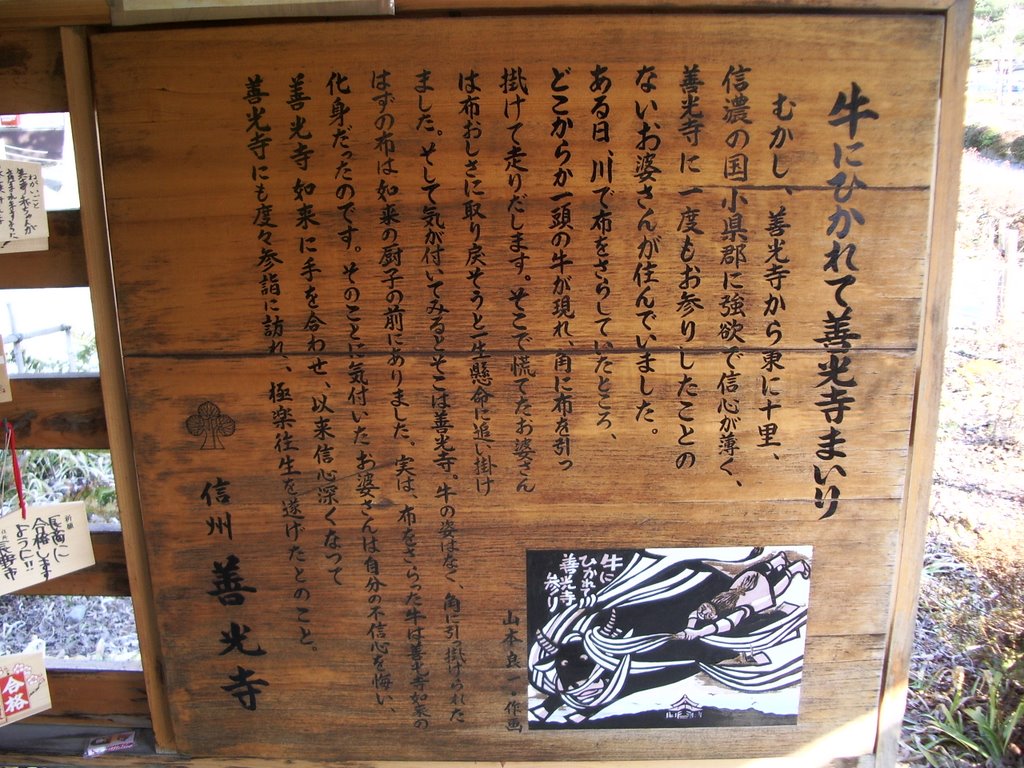 牛にひかれて善光寺まいり
むかし、善光寺から東に十里、
信濃の国 小県郡に強欲で信心が薄く、
善光寺に一度もお参りしたことの
ないお婆さんが住んでいました。
ある日、川で布をさらしていたところ、
どこからか一頭の牛が現れ、角に布を引っ
掛けて走りだします。そこで慌てたお婆さん
は布おしさに取り戻そうと一生懸命に追い掛け
ました。そして気が付いてみるとそこは善光寺。牛の姿はなく、角に引っ掛けられた
はずの布は如来の厨子の前にありました。実は、布をさらった牛は善光寺如来の
化身だったのです。そのことに気付いたお婆さんは自分の不信心を悔い、
善光寺如来に手を合わせ、以来信心深くなって
善光寺にも度々参詣に訪れ、極楽往生を遂げたとのこと。
信州 善光寺
山本良一・作画
牛に
ひかれて
善光寺
参り
ねがいごと
長商に
合格します
ように!!
長野市
合格